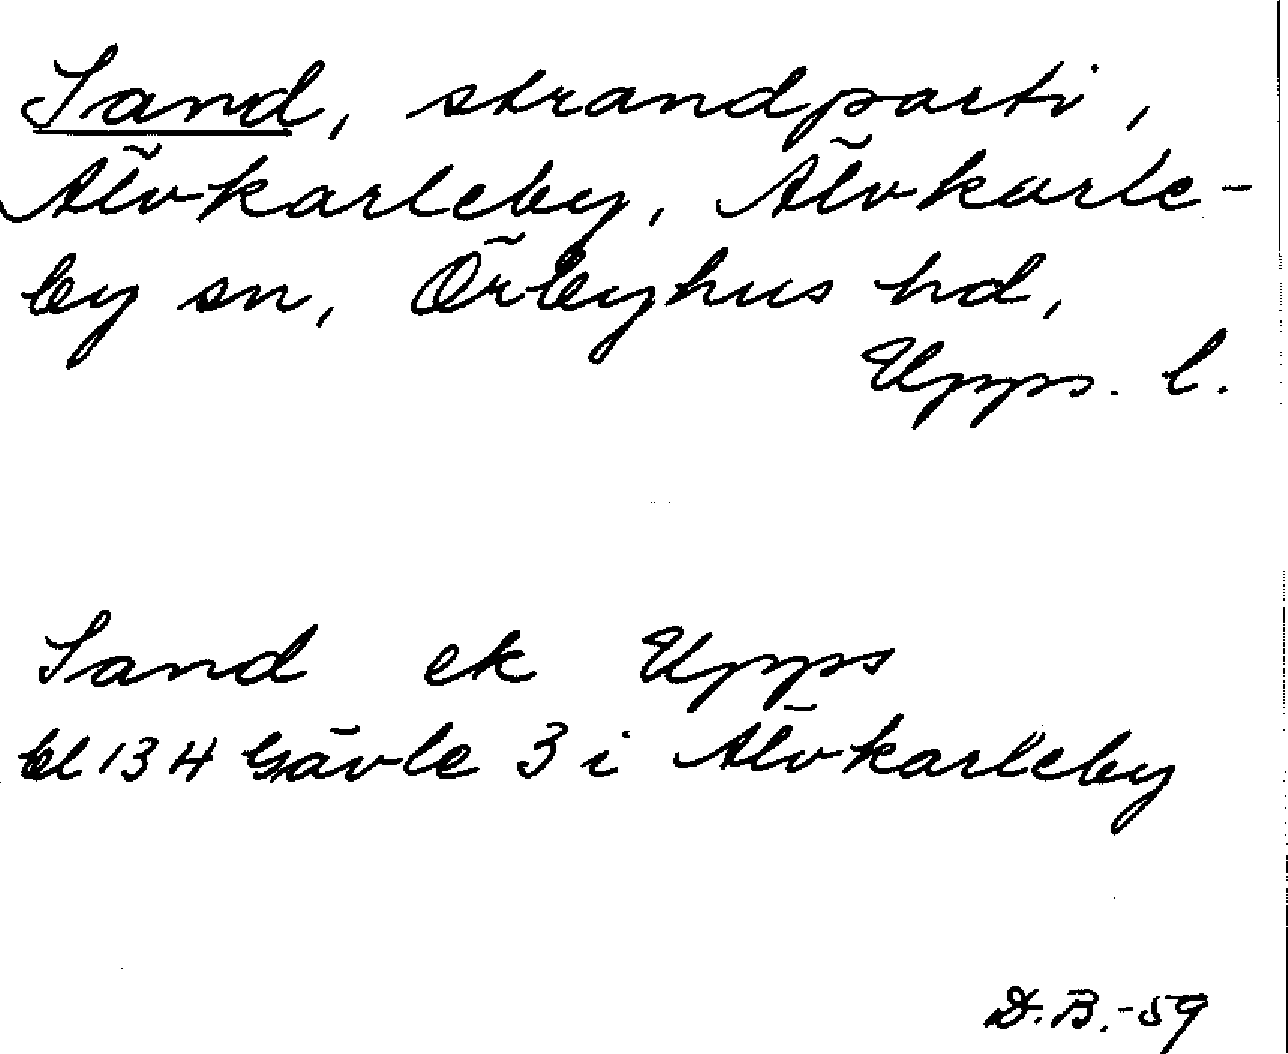 Sand, strandparti,
Älvkarleby, Älvkarle-
by sn, Örbyhus hd,
Upps. l.
Sand ek Upps
bl 134 Gävle 3 i Älvkarleby
D.B.-59